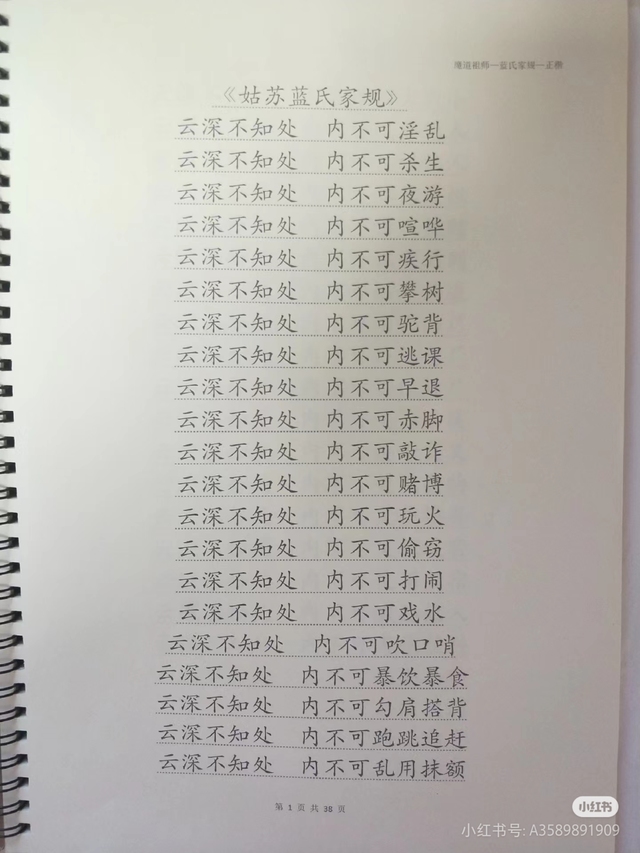 魔道祖师—蓝氏家规—正楷
《姑苏蓝氏家规》
云深不知处 内不可淫乱
云深不知处 内不可杀生
云深不知处 内不可夜游
云深不知处 内不可喧哗
云深不知处 内不可疾行
云深不知处 内不可攀树
云深不知处 内不可驼背
云深不知处 内不可逃课
云深不知处 内不可早退
云深不知处 内不可赤脚
云深不知处 内不可敲诈
云深不知处 内不可赌博
云深不知处 内不可玩火
云深不知处 内不可偷窃
云深不知处 内不可打闹
云深不知处 内不可戏水
云深不知处 内不可吹口哨
云深不知处 内不可暴饮暴食
云深不知处 内不可勾肩搭背
云深不知处 内不可跑跳追赶
云深不知处 内不可乱用抹额
第 1 页 共 38 页
小红书
小红书号: A3589891909